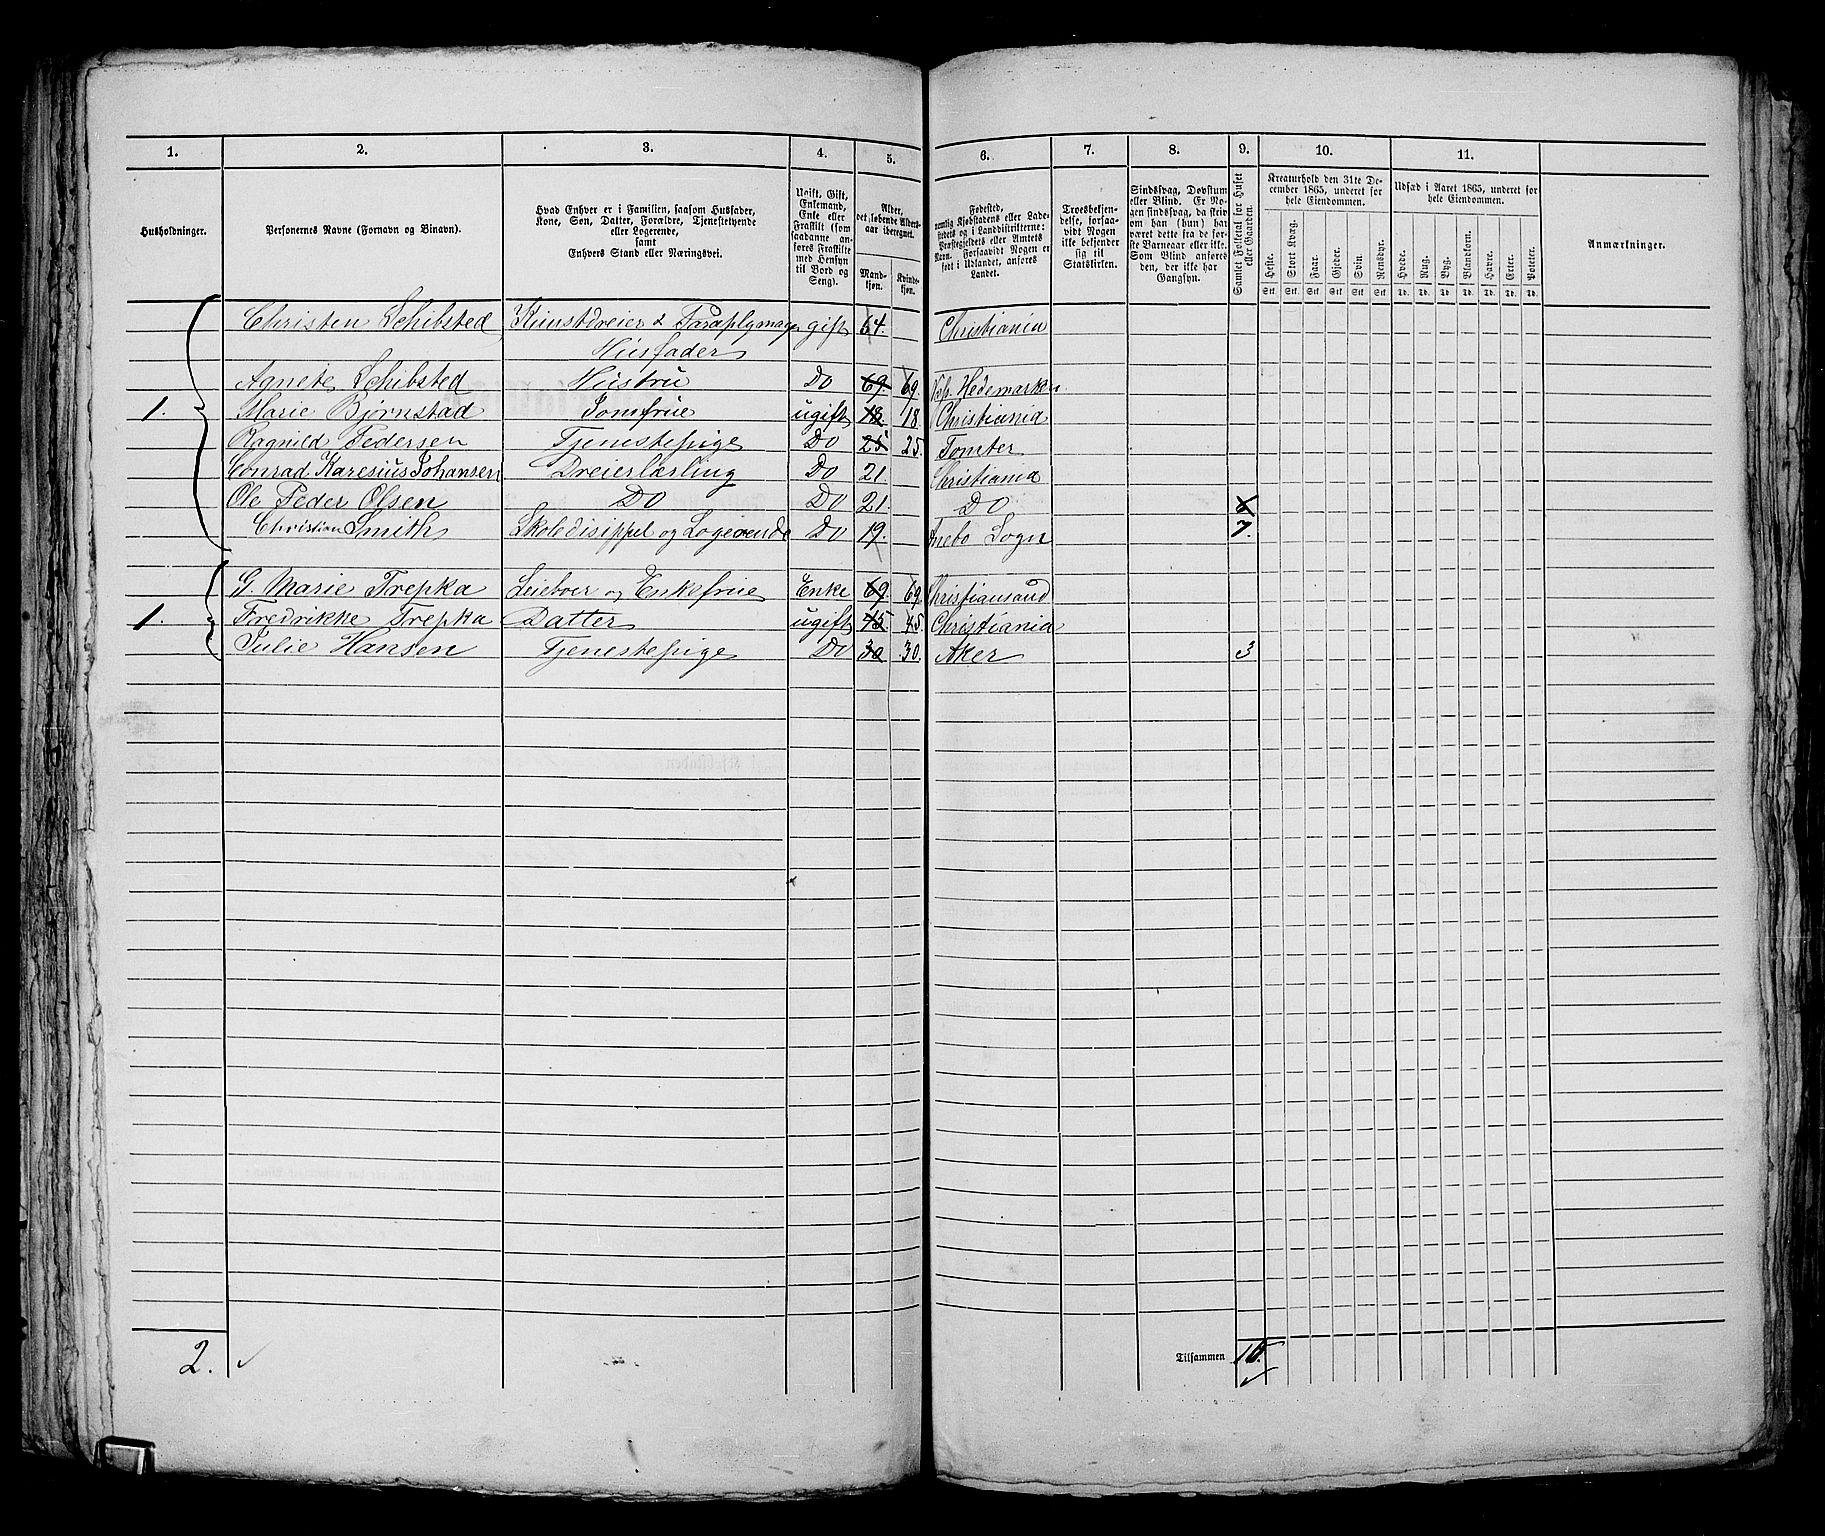 1. 2. 3. 4. 5. 6. 7. 8. 9. 10. 11.
Husholdninger.
Personernes Navne (Fornavn og Binavn).
Hvad Enhver er i Familien, saasom Husfader,
Kone, Søn, Datter, Forældre, Tjenestetyende
eller Logerende,
samt
Enhvers Stand eller Næringsvei.
Ugift, Gift,
Enkemand,
Enke eller
Fraskilt (som
saadanne an-
føres Fraskilte
med Hensyn
til Bord og
Seng).
Alder,
det løbende Alders-
aar iberegnet.
Mand-
kjøn.
Kvinde-
kjøn.
Fødested,
nemlig Kjøbstadens eller Lade-
stedets og i Landdistrikterne:
Præstegjeldets eller Amtets
Navn. Forsaavidt Nogen er
født i Udlandet, anføres
Landet.
Troesbekjen-
delse, forsaa-
vidt Nogen
ikke bekjender
sig til
Statskirken.
Sindssvag, Døvstum
eller Blind. Er No-
gen sindssvag, da skriv
om han (hun) har
været dette fra de før-
ste Barneaar eller ikke.
Som Blind anføres
den, der ikke har
Gangsyn.
Samlet Folketal for Huset
eller Gaarden.
Kreaturhold den 31te De-
cember 1865, underet for
hele Eiendommen.
Heste. Stort Kvæg. Faar. Gjeder. Svin. Rensdyr.
Stk. Stk. Stk. Stk. Stk. Stk.
Udsæd i Aaret 1865, underet for
hele Eiendommen.
Hvede. Rug. Byg. Blandkorn. Havre. Erter. Poteter.
Td. Td. Td. Td. Td. Td. Td.
Anmærkninger.
Christen Schibsted Kunstdreier & Paraplymager gift 64. Christiania
Husfader
Agnete Schibsted Hustru Do 69 69. Hedemarken
1. Marie Bjørnstad Jomfrue ugift 18 18. Christiania
Ragnild Pedersen Tjenestepige Do 25 25. Tomter
Conrad Karesius Johansen Dreierlærling Do 21. Christiania
Ole Peder Olsen Do Do 21. Do
Christian Smith Skoledisippel og Logerende Do 19. Anebo Sogn 7.
G. Marie Trepka Leieboer og Enkefrue Enke 69 69 Christiansand
1. Fredrikke Trepka Datter ugift 45 45. Christiania
Julie Hansen Tjenestepige Do 30 30. Aker 3
2.
Tilsammen 10.